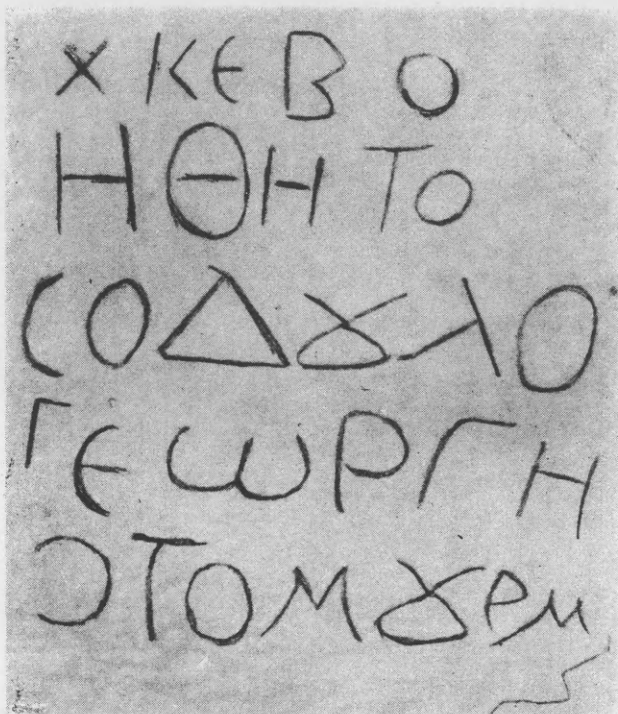 × ΚΕΒΟ
ΗΘΗΤΟ
СΟΔȢΛΟ
ΓΕΩΡΓΗ
ΟΤΟΜȢΡΜ